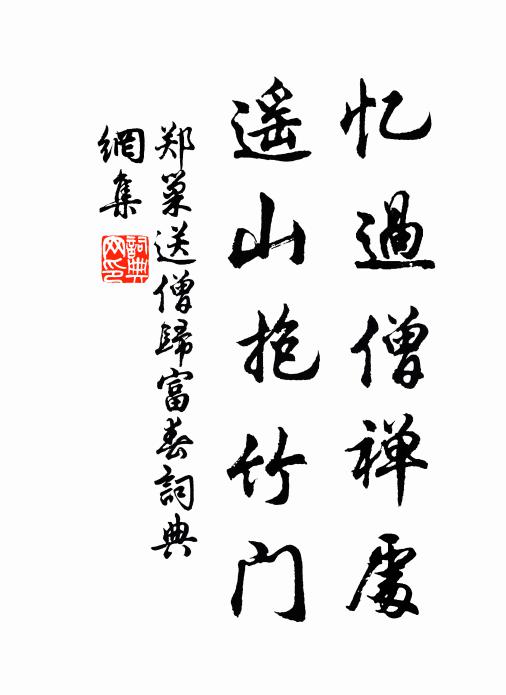 忆過僧禅處
遥山抱竹门
郑巢送僧歸富春詞典
網集
詞典
网印